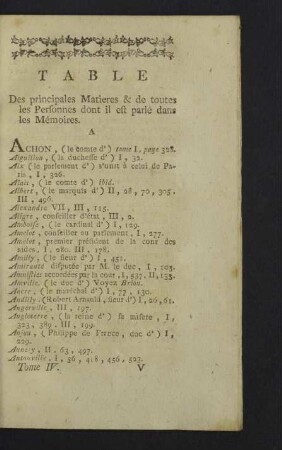 TABLE
Des principales Matieres & de toutes
les Personnes dont il est parlé dans
les Mémoires.
A
ACHON, (le comte d') tome I, page 328.
Aiguillon, (la duchesse d') I, 32.
Aix (le parlement d') s'unit à celui de Pa-
ris, I, 326.
Alais, (le comte d') ibid.
Albert, (le marquis d') II, 28, 70, 305.
III, 496.
Alexandre VII, III, 115.
Aligre, conseiller d'état, III, 2.
Amboise, (le cardinal d') I, 109.
Amelot, conseiller au parlement, I, 277.
Amelot, premier président de la cour des
aides, I, 280. III, 178.
Amilly, (le sieur d') I, 451.
Amirauté disputée par M. le duc, I, 103.
Amnisties accordées par la cour, I, 537. II, 133.
Amville, (le duc d') Voyez Brion.
Ancre, (le maréchal d') I, 77, 130.
Andilly, (Robert Arnauld, sieur d') I, 20, 61.
Angerville, III, 197.
Angleterre, (la reine d') sa misere, I,
525, 589, III, 199.
Anjou, (Philippe de France, duc d') I,
209.
Annery, II, 65, 497.
Antonville, I, 56, 418, 456, 527.
Tome IV. V